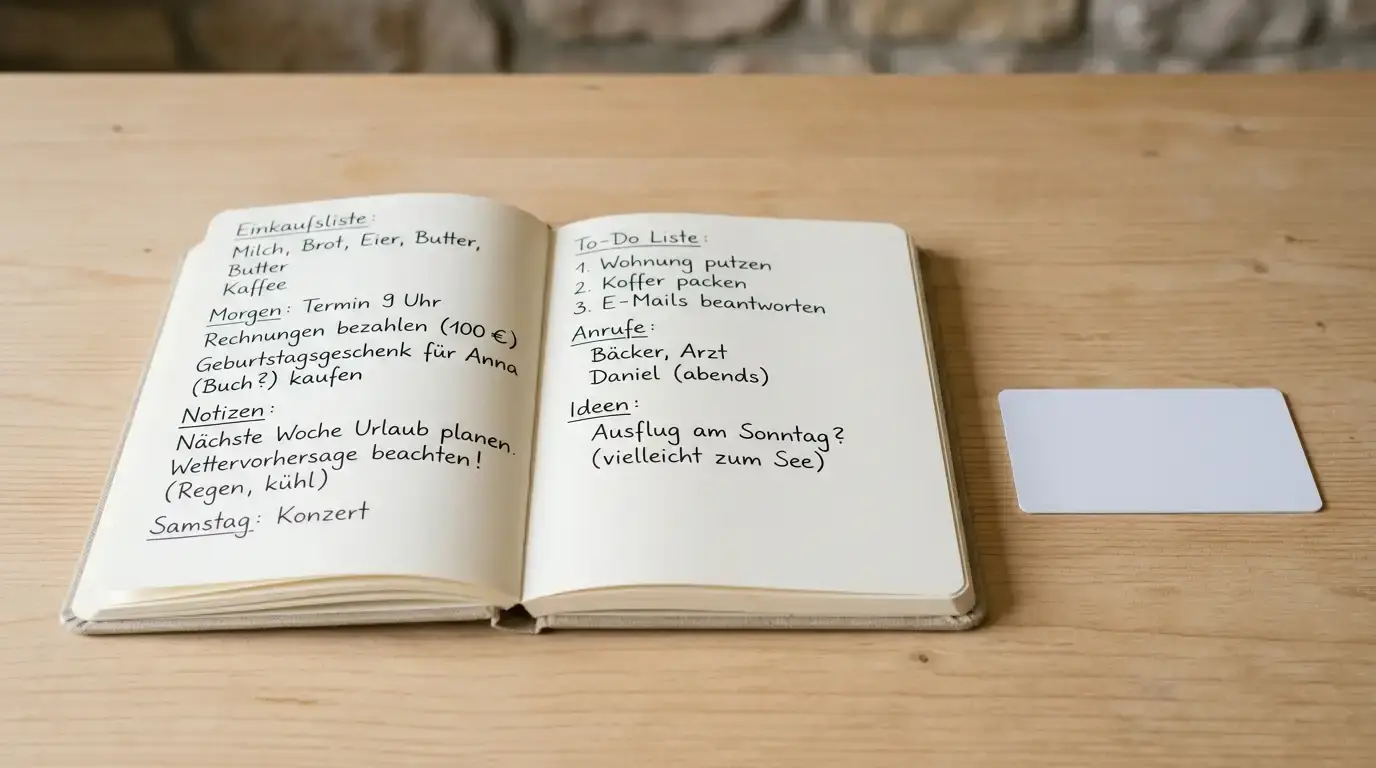 Einkaufsliste:
Milch, Brot, Eier, Butter,
Butter
Kaffee
Morgen: Termin 9 Uhr
Rechnungen bezahlen (100 €)
Geburtstagsgeschenk für Anna
(Buch?) kaufen
Notizen:
Nächste Woche Urlaub planen.
Wettervorhersage beachten!
(Regen, kühl)
Samstag: Konzert
To-Do Liste:
1. Wohnung putzen
2. Koffer packen
3. E-Mails beantworten
Anrufe:
Bäcker, Arzt
Daniel (abends)
Ideen:
Ausflug am Sonntag?
(vielleicht zum See)